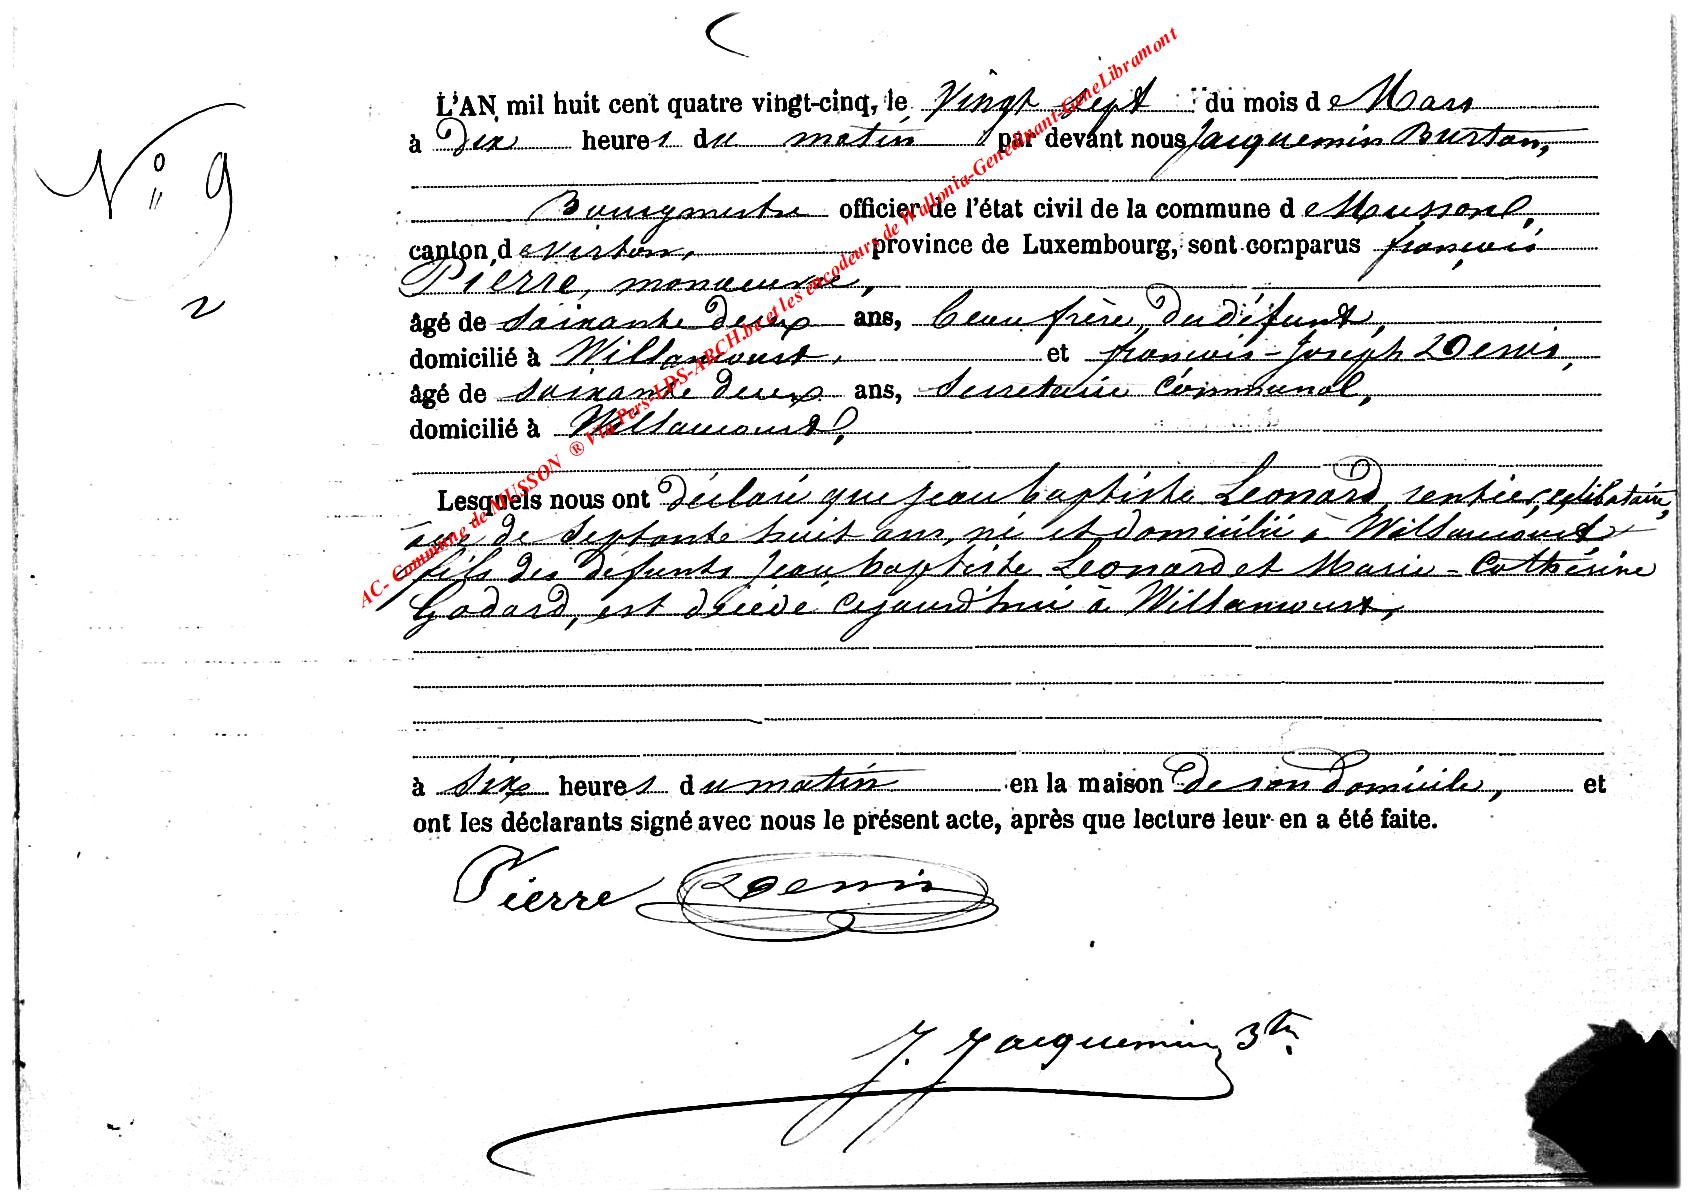 N° 9
2
L'AN mil huit cent quatre vingt-cinq, le Vingt Sept du mois de Mars
à Dix heures du matin par devant nous Jacquemin Burton,
Bourgmestre officier de l'état civil de la commune de Musson,
canton de Virton, province de Luxembourg, sont comparus françois
Pierre, manœuvre,
âgé de soixante deux ans, beau frère du défunt,
domicilié à Willancourt, et françois-Joseph Denis,
âgé de soixante deux ans, secrétaire communal,
domicilié à Willancourt,
Lesquels nous ont déclaré que Jean baptiste Leonard, rentier, célibataire,
âgé de septante huit ans, né et domicilié à Willancourt
fils des défunts Jean baptiste Leonard et Marie-Cathérine
Godard, est décédé cejourd'hui à Willancourt,
à six heures du matin en la maison de son domicile, et
ont les déclarants signé avec nous le présent acte, après que lecture leur en a été faite.
Pierre Denis
J. Jacquemin Btn
AC- Commune de MUSSON ® Via Pers-LDS-ARCH.be et les encodeurs de Wallonia-Genedinant-GeneLibramont